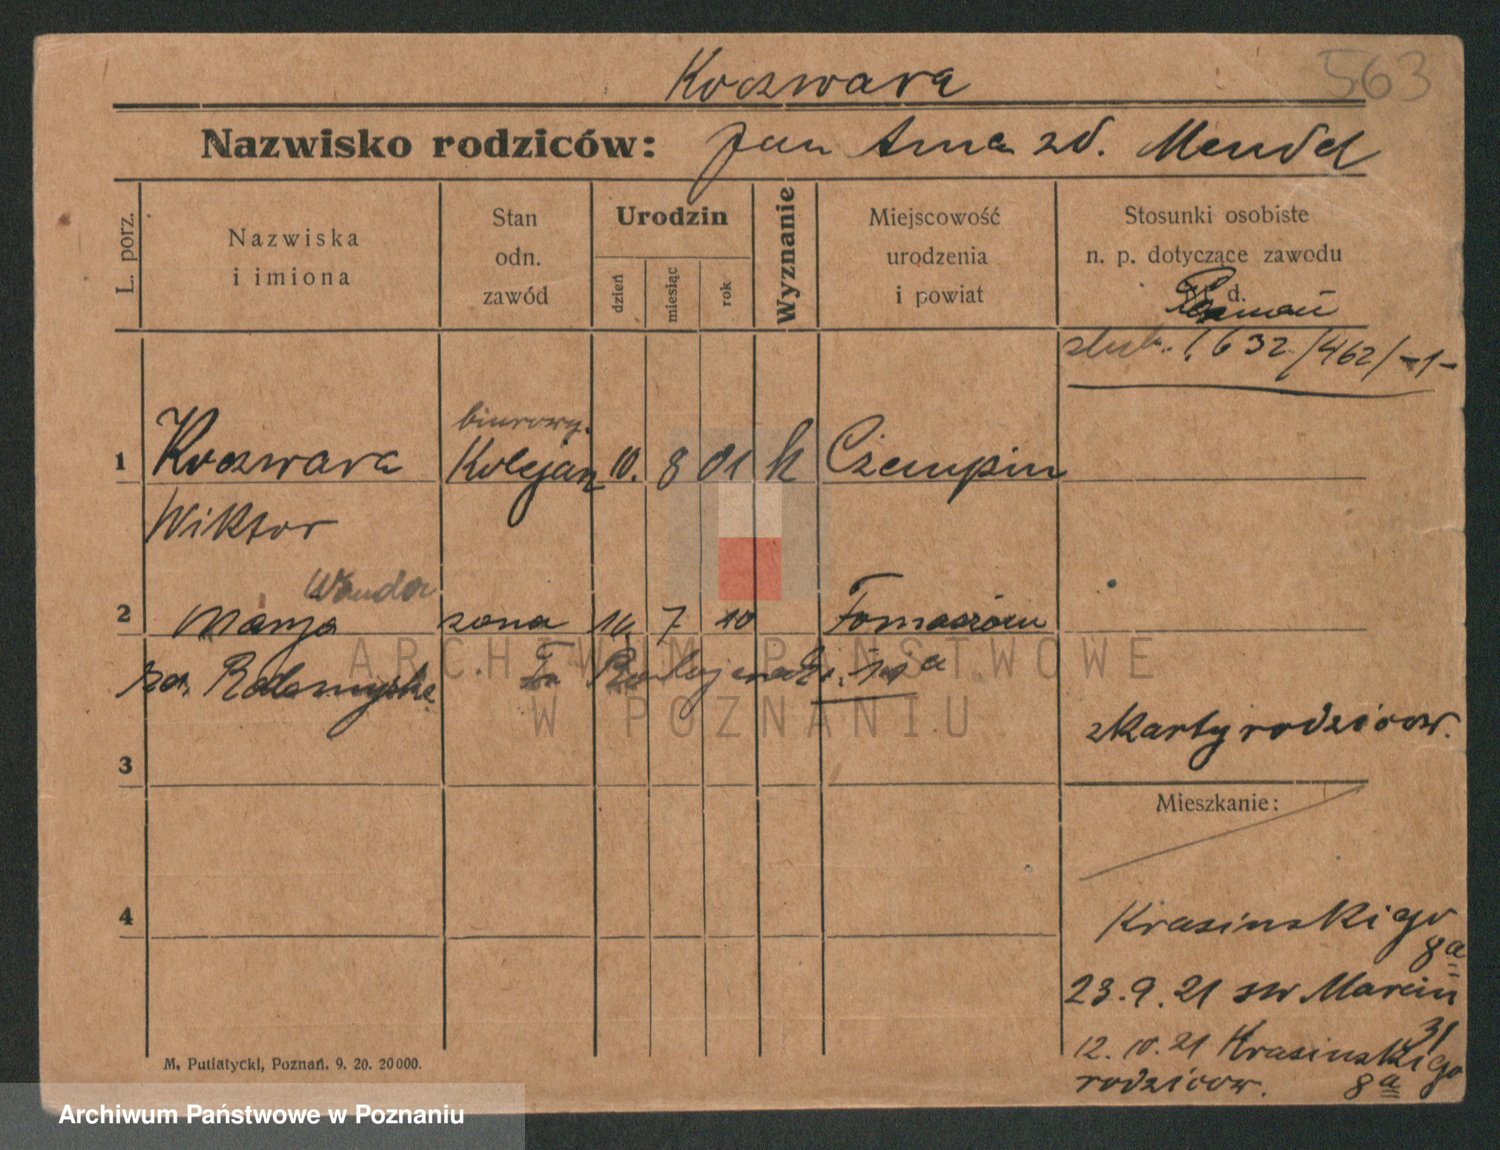 563
Koczwara
Nazwisko rodziców: Jan Anna zd. Mendel
L. porz.
Nazwiska
i imiona
Stan
odn.
zawód
Urodzin
dzień
miesiąc
rok
Wyznanie
Miejscowość
urodzenia
i powiat
Stosunki osobiste
n. p. dotyczące zawodu
i t. d.
Poznań
ślub. 1.6 32. /462/ -1-
biurowy.
1 Koczwara Kolejarz 10. 8 01 k Czempin
Wiktor
Wanda
2 Marja żona 10 Tomaszów
zd.
z karty rodziców.
3
Mieszkanie:
4
Krasińskiego
8a
23.9.21 św Marcin
31
12.10.21 Krasińskiego
rodziców. 8a
M. Putiatycki, Poznań. 9. 20. 20000.
ARCHIWUM PAŃSTWOWE
W POZNANIU
Archiwum Państwowe w Poznaniu